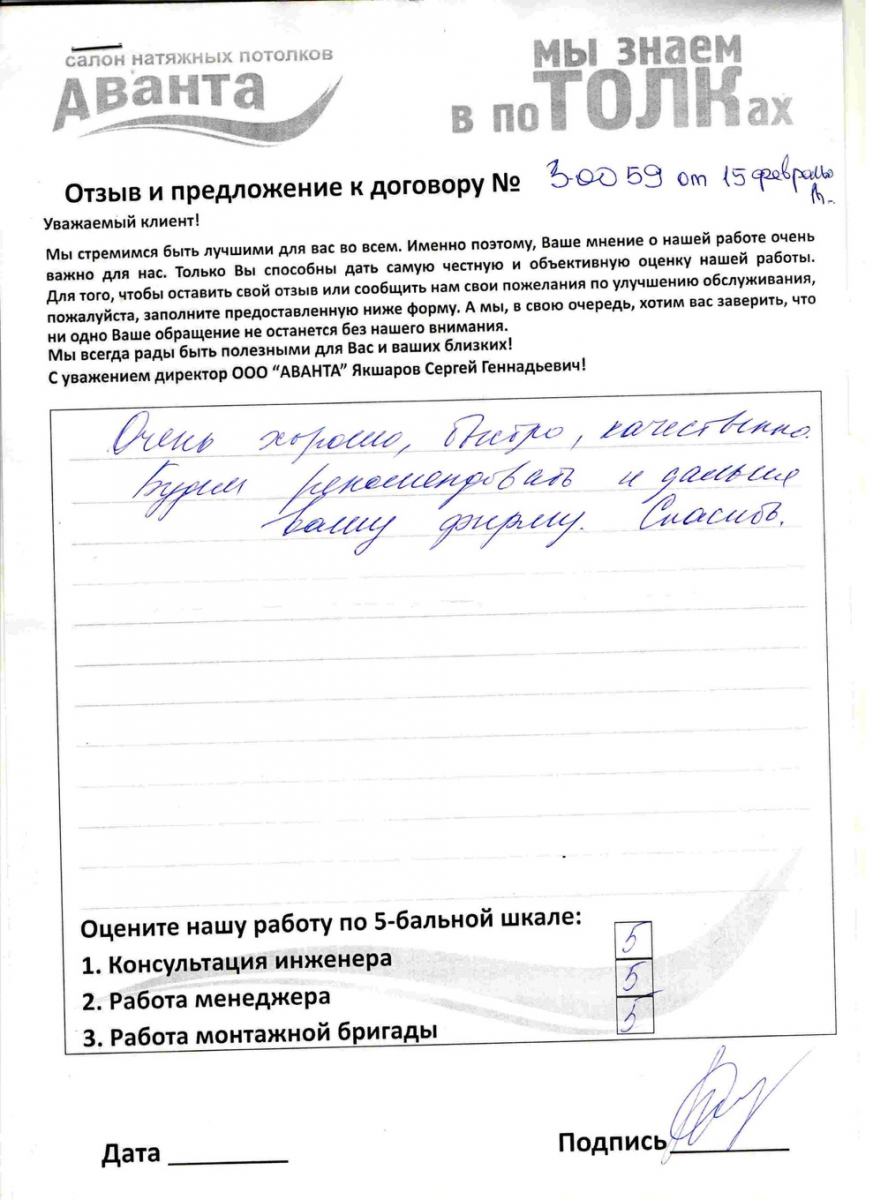 салон натяжных потолков
Аванта
мы знаем
в поТОЛКах
Отзыв и предложение к договору № 3-00 59 от 15 февраля
Уважаемый клиент!
Мы стремимся быть лучшими для вас во всем. Именно поэтому, Ваше мнение о нашей работе очень
важно для нас. Только Вы способны дать самую честную и объективную оценку нашей работы.
Для того, чтобы оставить свой отзыв или сообщить нам свои пожелания по улучшению обслуживания,
пожалуйста, заполните предоставленную ниже форму. А мы, в свою очередь, хотим вас заверить, что
ни одно Ваше обращение не останется без нашего внимания.
Мы всегда рады быть полезными для Вас и ваших близких!
С уважением директор ООО "АВАНТА" Якшаров Сергей Геннадьевич!
Очень хорошо, быстро, качественно.
Будем рекомендовать и дальше
вашу фирму. Спасибо.
Оцените нашу работу по 5-бальной шкале:
1. Консультация инженера 5
2. Работа менеджера 5
3. Работа монтажной бригады 5
Дата Подпись